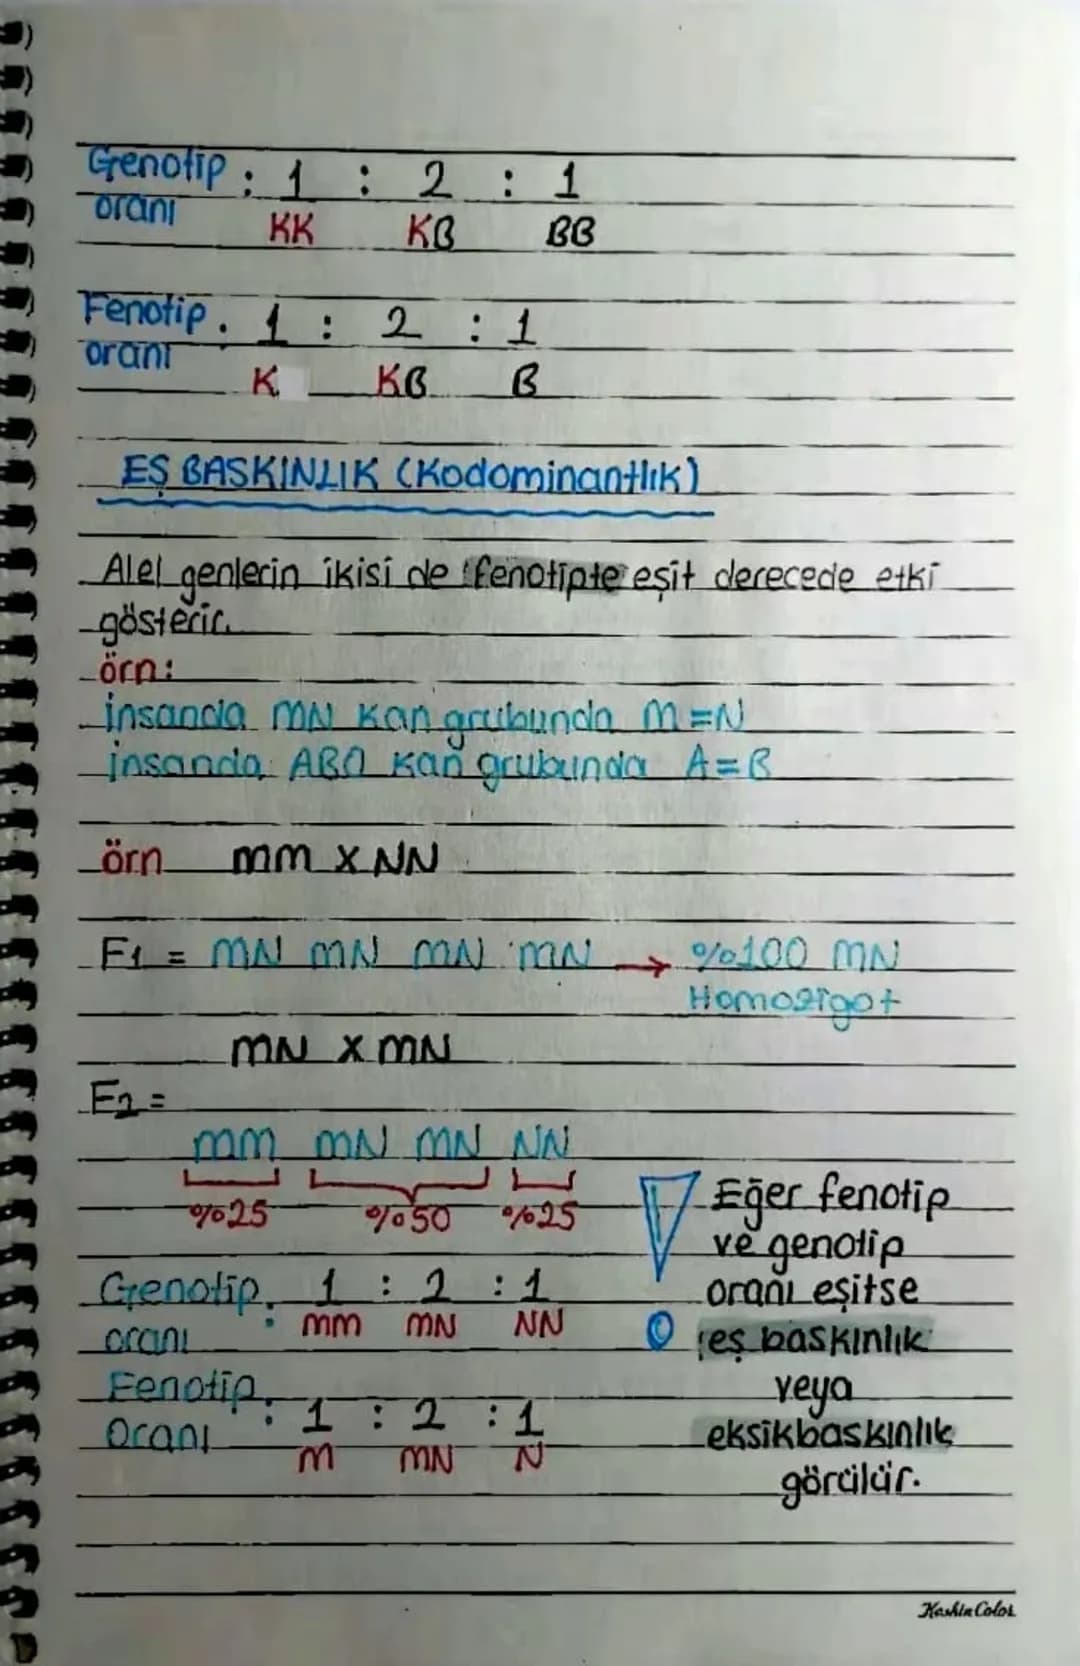 Genotip oranı : 1 : 2 : 1
KK KB BB
Fenotip oranı : 1 : 2 : 1
K KB B
EŞ BASKINLIK (Kodominantlık)
Alel genlerin ikisi de fenotipte eşit derecede etki
gösterir.
örn:
İnsanda MN kan grubunda M=N
İnsanda ABO kan grubunda A=B
örn MM X NN
F1 = MN MN MN MN → %100 MN
Homozigot
MN X MN
F2 =
MM MN MN NN
%25 %50 %25
Genotip oranı : 1 : 2 : 1
MM MN NN
Fenotip Oranı : 1 : 2 : 1
M MN N
Eğer fenotip
ve genotip
oranı eşitse
eş baskınlık
veya
eksikbaskınlık
görülür.
KeskinColor